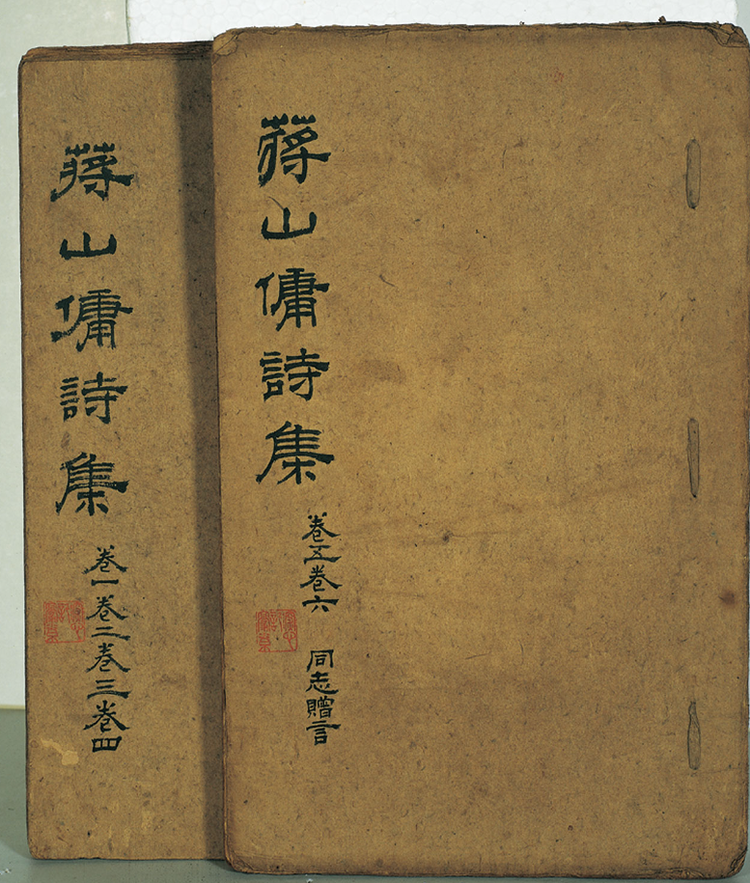 蔣山傭詩集
卷五卷六 同志贈言
蔣山傭詩集
卷一卷二卷三卷四